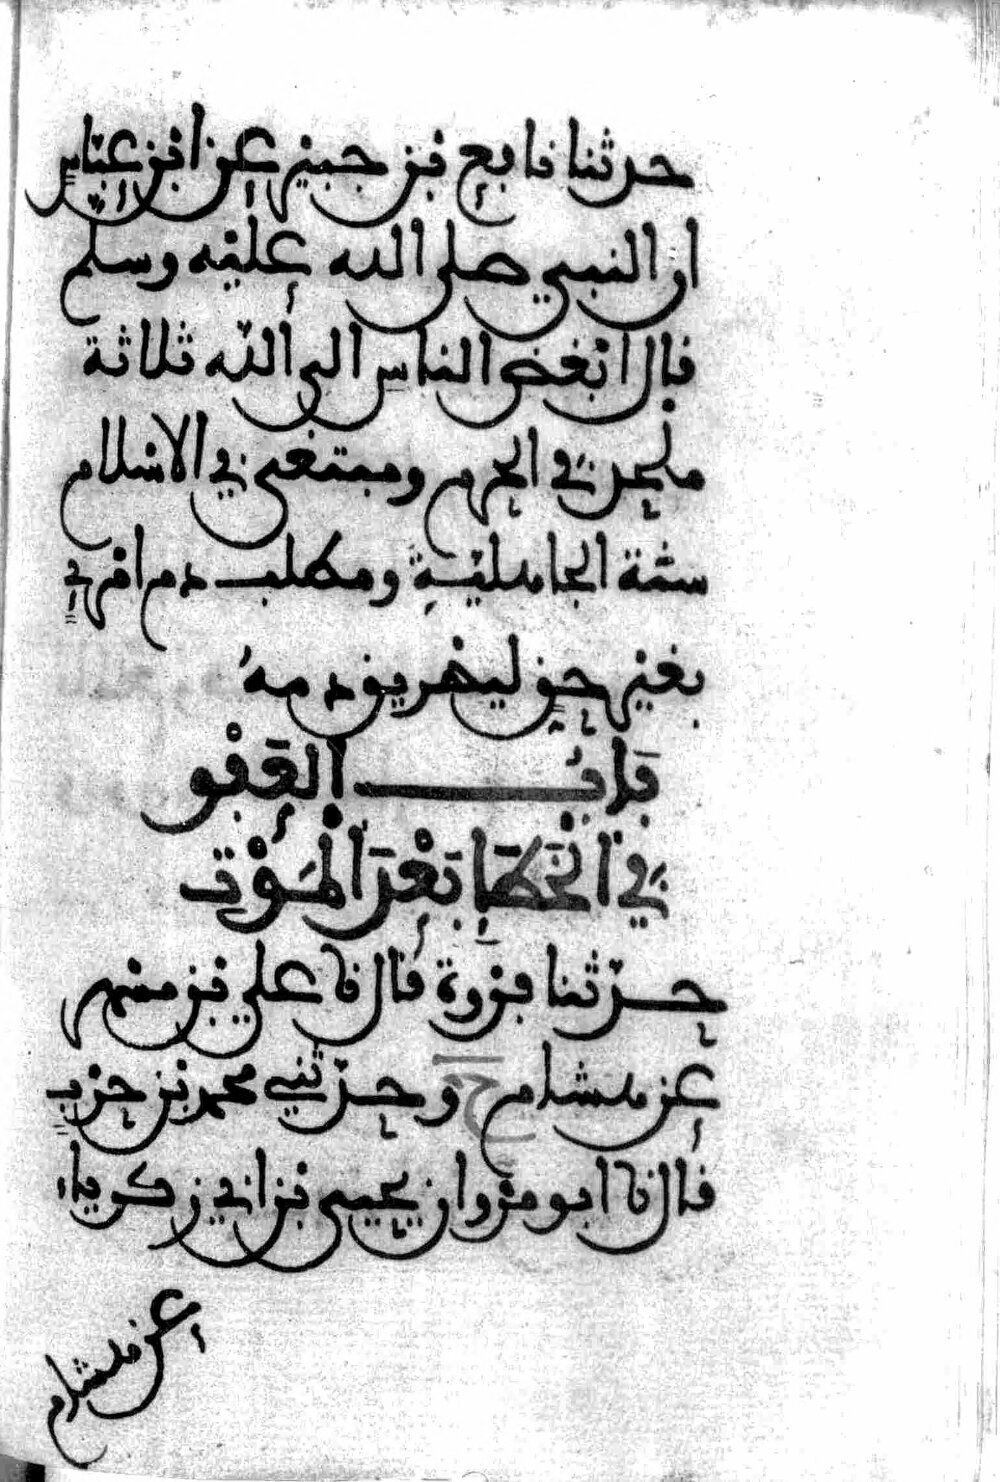 حدثنا نابع بن جبير عن ابن عباس
ان النبي صلى الله عليه وسلم
قال ابغض الناس الى الله ثلاثة
ملحد في الحرم ومبتغى في الاسلام
سنة الجاهلية ومطلب دم امرئ
بغير حق ليهريق دمه
باب العفو
في الخطإ بعد الموت
حدثنا فروة قال نا علي بن مسهر
عن هشام ح وحدثني محمد بن حرب
قال نا ابو مروان يحيى بن ابي زكرياء
عن هشام